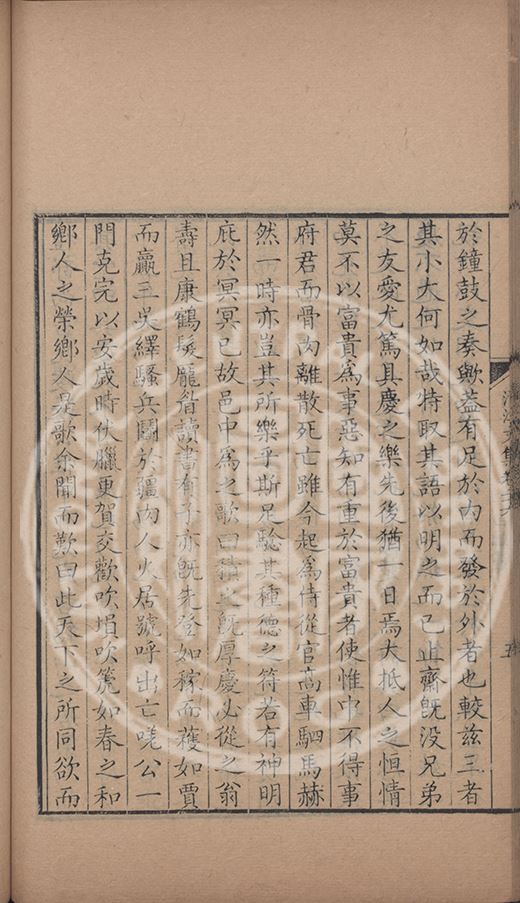 於鐘鼓之奏歟葢有足於內而發於外者也較兹三者
其小大何如哉特取其語以明之而已止齋旣没兄弟
之友愛尤篤具慶之樂先後猶一日焉大抵人之恒情
莫不以富貴爲事惡知有重於富貴者使惟中不得事
府君而骨肉離散死亡雖今起爲侍從官高車駟馬赫
然一時亦豈其所樂乎斯足驗其種德之符若有神明
庇於冥冥已故邑中爲之歌曰積之旣厚慶必從之翁
壽且康鶴髮龎眉讀書有子亦旣先登如稼而穫如賈
而贏三吳繹騷兵鬭於疆內人火居號呼出亡嗟公一
門克完以安歲時伏臘更賀交歡吹塤吹篪如春之和
鄉人之榮鄉人是歌余聞而歎曰此天下之所同欲而